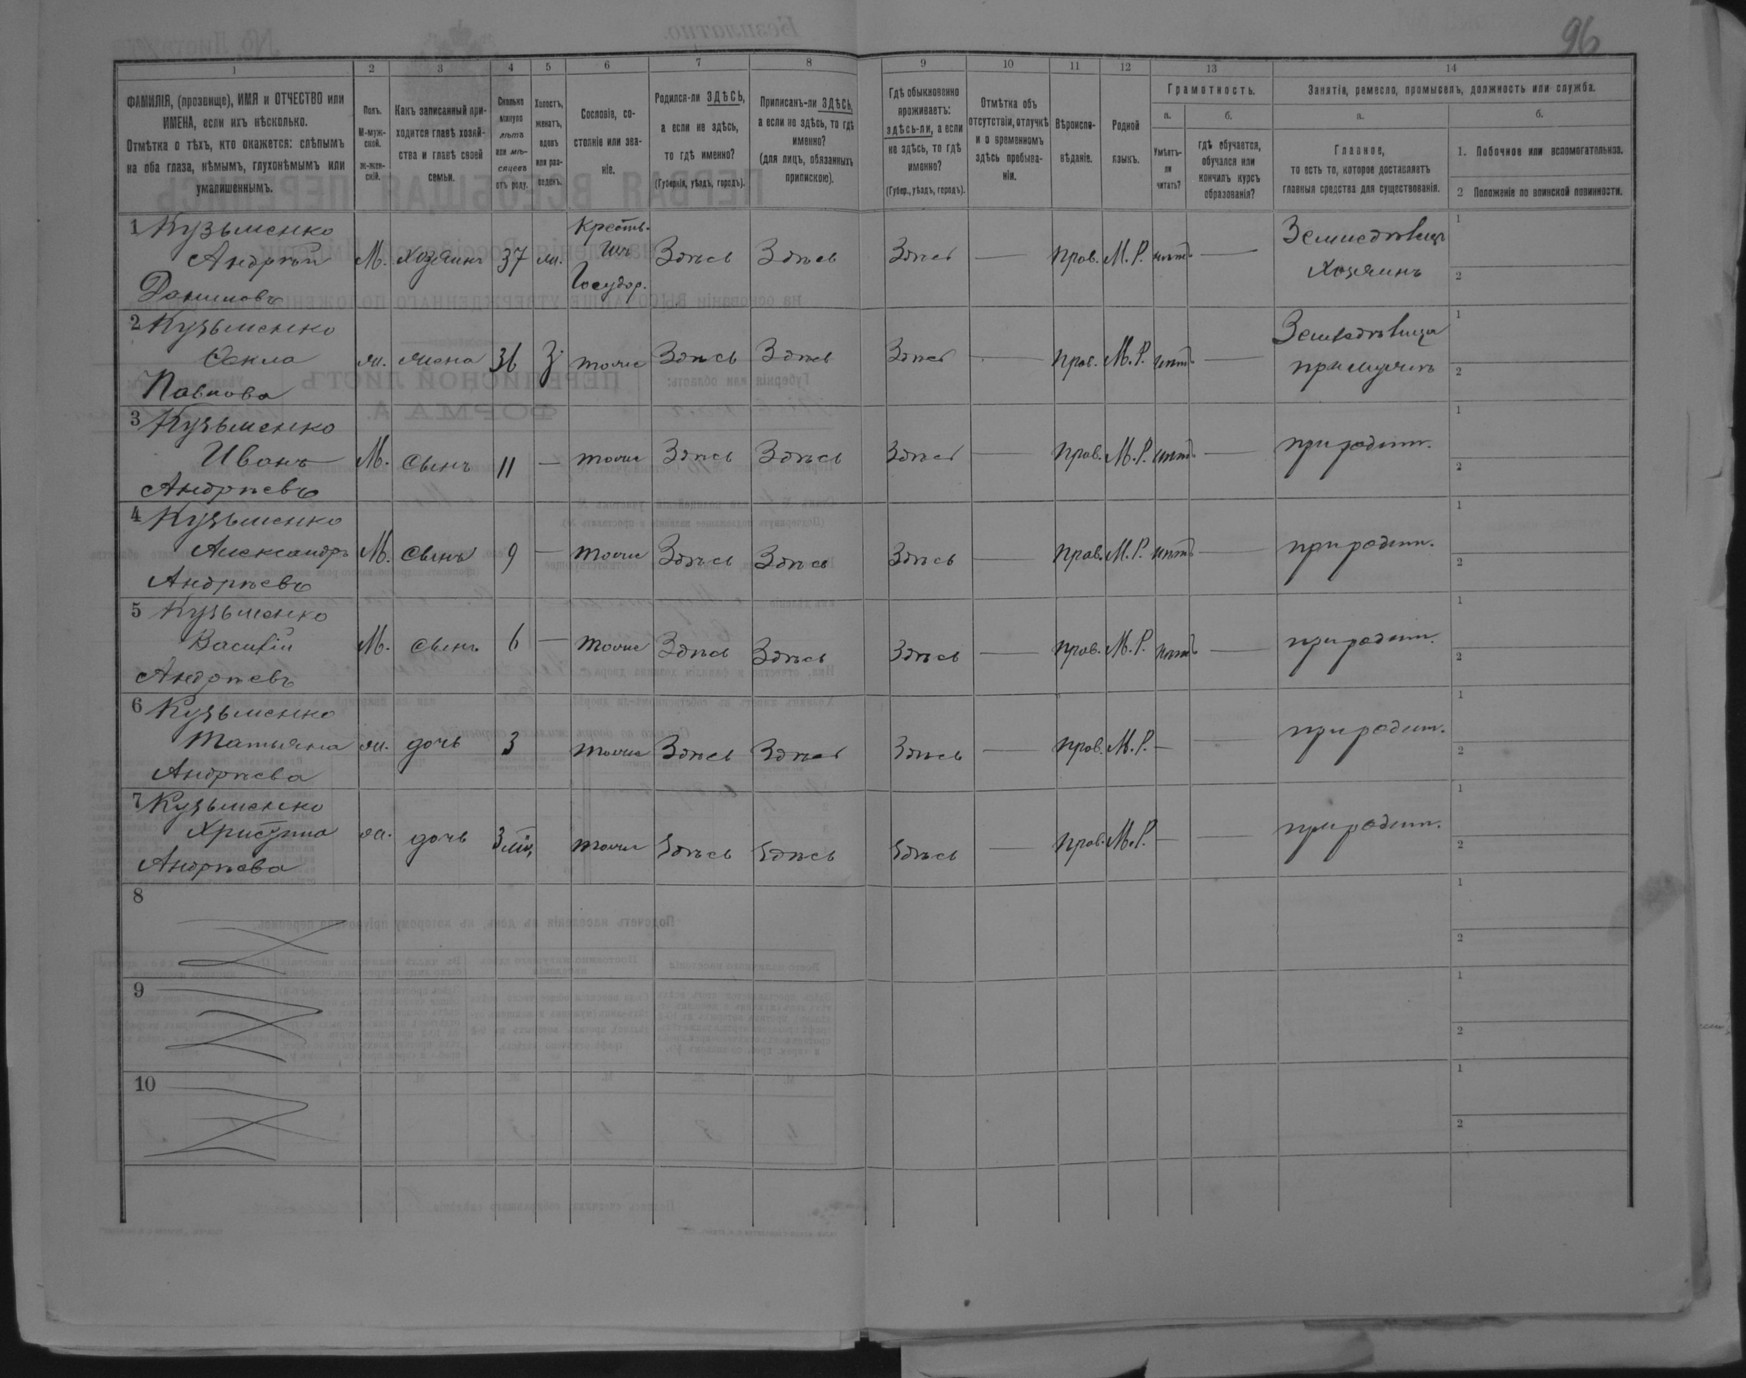 96
1 2 3 4 5 6 7 8 9 10 11 12 13 14
ФАМИЛІЯ, (прозвище), ИМЯ и ОТЧЕСТВО или ИМЕНА, если ихъ нѣсколько.
Отмѣтка о тѣхъ, кто окажется: слѣпымъ на оба глаза, нѣмымъ, глухонѣмымъ или умалишеннымъ.
Полъ. М-муж-ской. ж-жен-скій.
Какъ записанный при-ходится главѣ хозяй-ства и главѣ своей семьи.
Сколько минуло лѣтъ или мѣ-сяцевъ отъ роду.
Холостъ, женатъ, вдовъ или раз-веденъ.
Сословіе, со-стояніе или зва-ніе.
Родился-ли ЗДѢСЬ, а если не здѣсь, то гдѣ именно?
(Губернія, уѣздъ, городъ).
Приписанъ-ли ЗДѢСЬ, а если не здѣсь, то гдѣ именно?
(для лицъ, обязанныхъ припискою).
Гдѣ обыкновенно проживаетъ: здѣсь-ли, а если не здѣсь, то гдѣ именно?
(Губер., уѣздъ, городъ).
Отмѣтка объ отсутствіи, отлучкѣ и о временномъ здѣсь пребыва-ніи.
Вѣроиспо-вѣданіе.
Родной языкъ.
Грамотность.
а. Умѣетъ-ли читать?
б. гдѣ обучается, обучался или кончилъ курсъ образованія?
Занятія, ремесло, промыселъ, должность или служба.
а. Главное, то есть то, которое доставляетъ главныя средства для существованія.
б. 1. Побочное или вспомогательное.
2 Положеніе по воинской повинности.
1 Кузьменко Андрѣй Даниловъ М. хозяинъ 37 ж. Крестьянинъ Государ. Здѣсь Здѣсь Здѣсь — Прав. М.Р. нѣтъ — Земледѣлец хозяинъ 1 2
2 Кузьменко Фекла Павлова ж. жена 36 З тоже Здѣсь Здѣсь Здѣсь — Прав. М.Р. нѣтъ — Земледѣлица при мужѣ 1 2
3 Кузьменко Иванъ Андрѣевъ М. сынъ 11 — тоже Здѣсь Здѣсь Здѣсь — Прав. М.Р. нѣтъ — при родит. 1 2
4 Кузьменко Александръ Андрѣевъ М. сынъ 9 — тоже Здѣсь Здѣсь Здѣсь — Прав. М.Р. нѣтъ — при родит. 1 2
5 Кузьменко Василій Андрѣевъ М. сынъ 6 — тоже Здѣсь Здѣсь Здѣсь — Прав. М.Р. нѣтъ — при родит. 1 2
6 Кузьменко Татьяна Андрѣева ж. дочь 3 тоже Здѣсь Здѣсь Здѣсь — Прав. М.Р. — — при родит. 1 2
7 Кузьменко Христина Андрѣева ж. дочь 3 мѣс. тоже Здѣсь Здѣсь Здѣсь — Прав. М.Р. — — при родит. 1 2
8 1 2
9 1 2
10 1 2